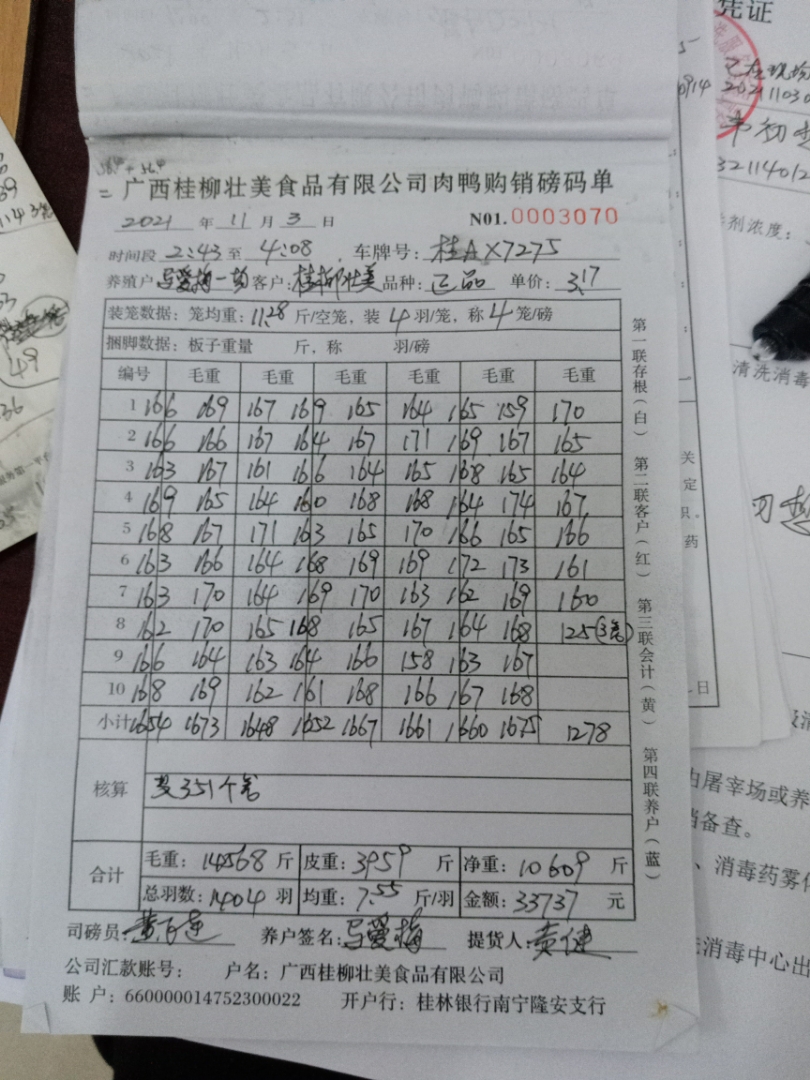 凭证
20211103
广西桂柳壮美食品有限公司肉鸭购销磅码单
2021 年 11 月 3 日 N01.0003070
时间段 2:43 至 4:08 车牌号: 桂AX7275
养殖户 马爱梅一场 客户: 桂柳壮美 品种: 正品 单价: 3.17
装笼数据: 笼均重: 11.28 斤/空笼, 装 4 羽/笼, 称 4 笼/磅
捆脚数据: 板子重量 斤, 称 羽/磅
编号 毛重 毛重 毛重 毛重 毛重 毛重
1 166 169 167 169 165 164 165 159 170
2 166 166 167 164 167 171 169 167 165
3 163 167 161 166 164 165 168 165 164
4 169 165 164 160 168 168 164 174 167
5 168 167 171 163 165 170 166 165 166
6 163 166 164 168 169 169 172 173 161
7 163 170 164 169 170 163 162 169 160
8 162 170 165 168 165 167 164 168 125(3笼)
9 166 164 163 164 166 158 163 167
10 168 169 162 161 168 166 167 168
小计 1654 1673 1648 1652 1667 1661 1660 1675 1278
核算 351个笼
合计 毛重: 14568 斤 皮重: 3959 斤 净重: 10609 斤
总羽数: 1404 羽 均重: 7.55 斤/羽 金额: 33737 元
司磅员: 养户签名: 马爱梅 提货人: 黄健
公司汇款账号: 户名: 广西桂柳壮美食品有限公司
账 户: 660000014752300022 开户行: 桂林银行南宁隆安支行
第一联存根(白) 第二联客户(红) 第三联会计(黄) 第四联养户(蓝)
剂浓度:
清洗消毒
屠宰场或养
备查。
、消毒药雾
消毒中心出